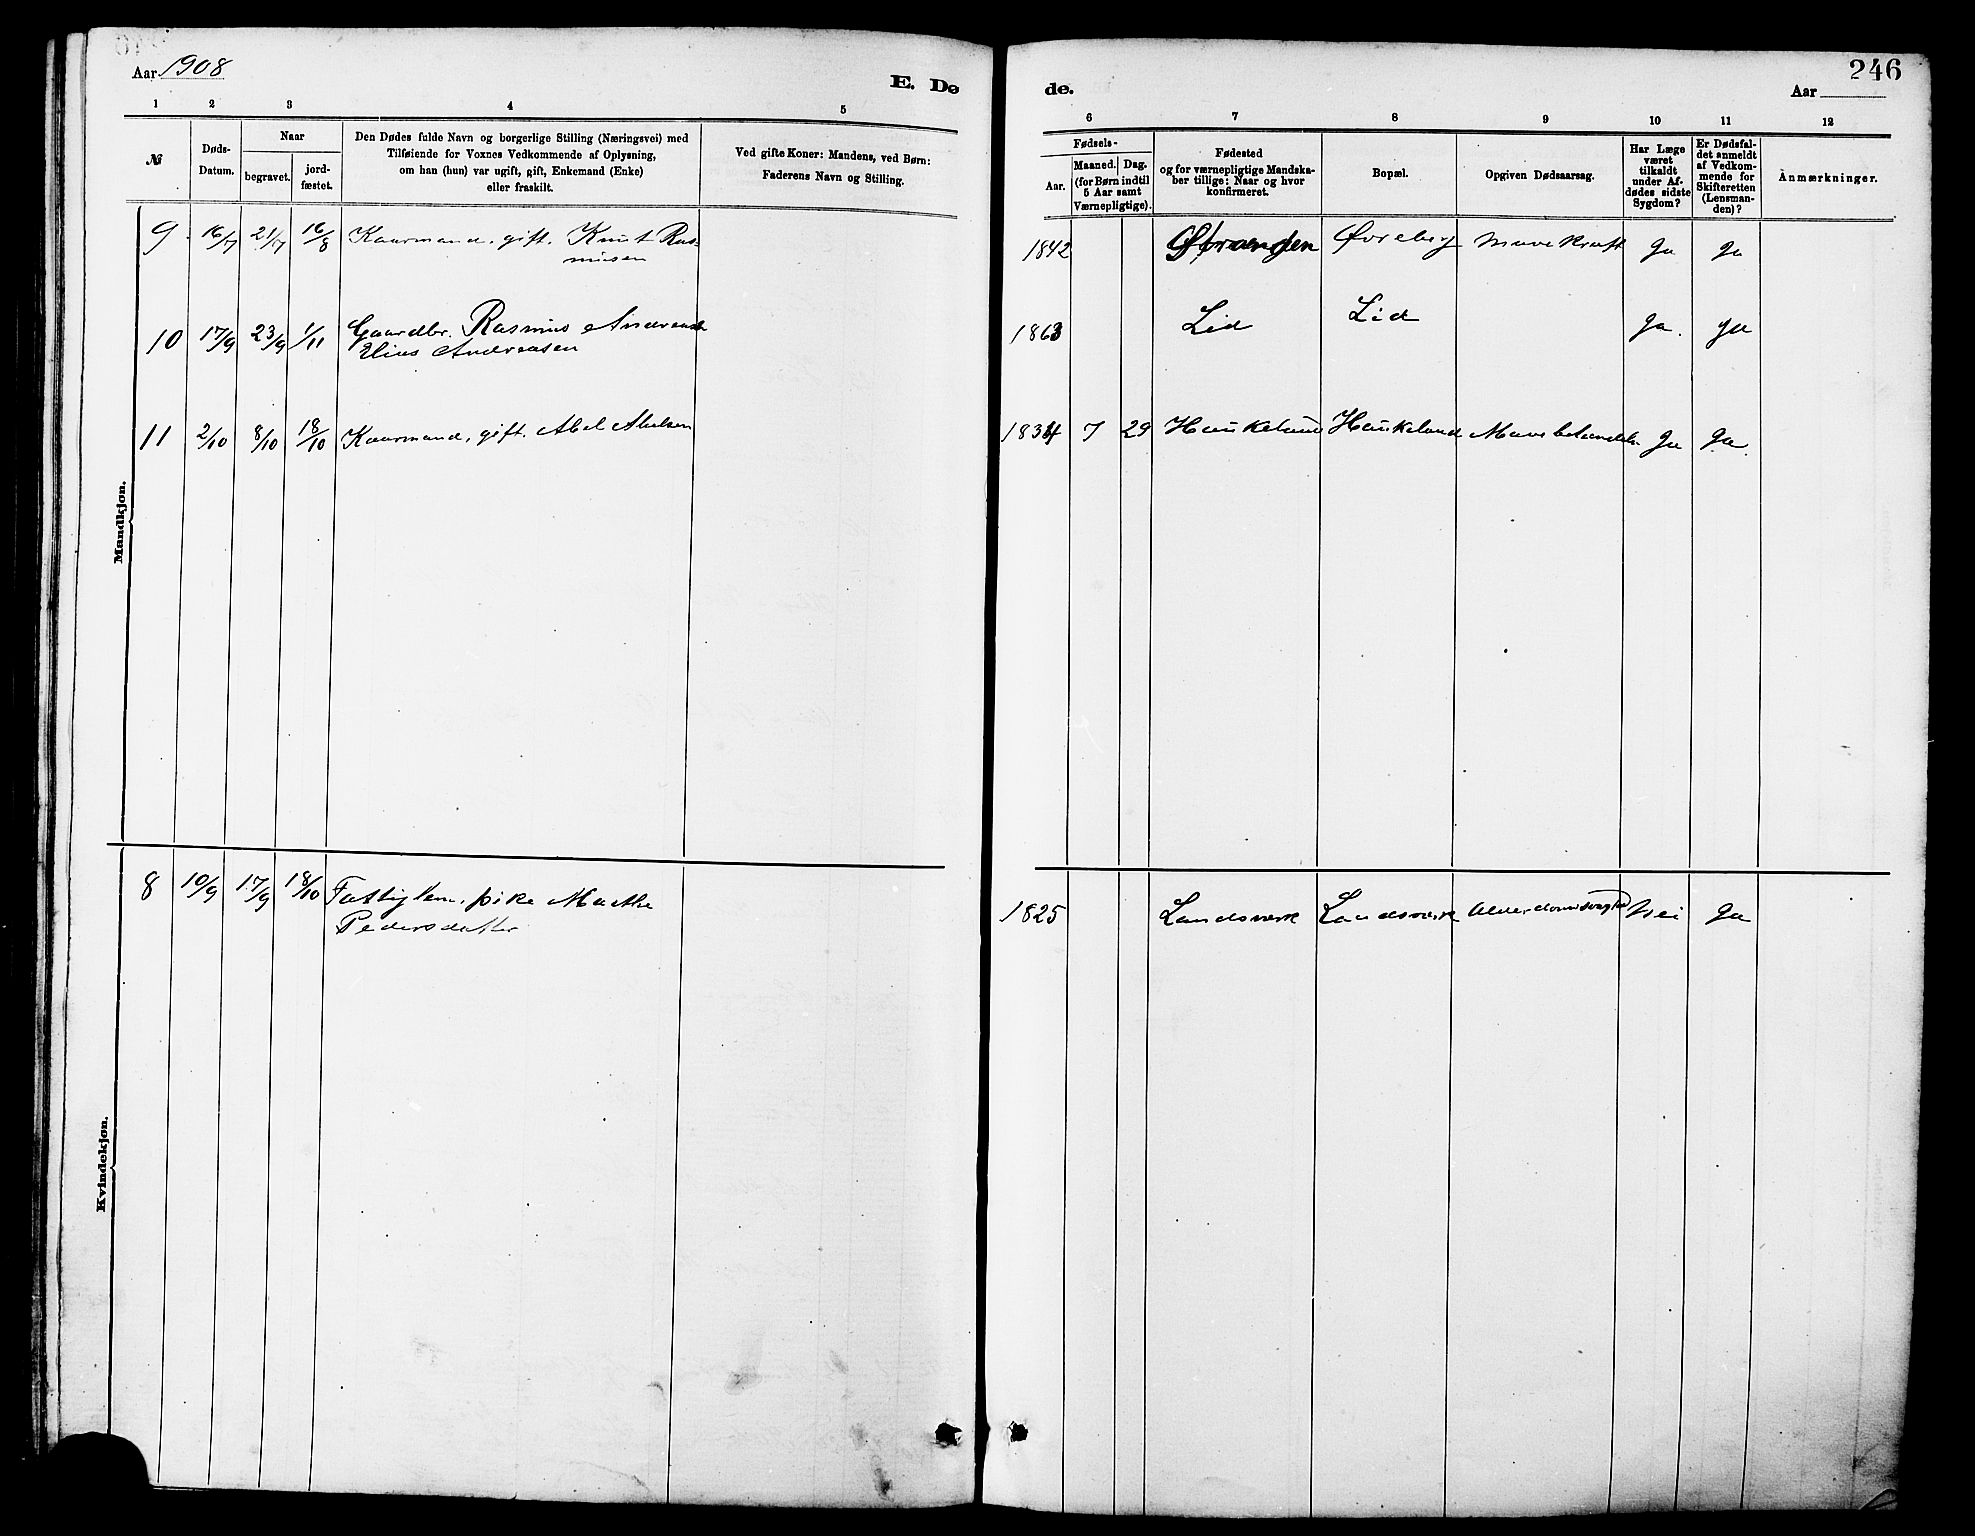 Aar 1908
E. Dø
de.
246
Aar
1 2 3 4 5
6 7 8 9 10 11 12
№
Døds-
Datum.
Naar
begravet.
jord-
fæstet.
Den Dødes fulde Navn og borgerlige Stilling (Næringsvei) med
Tilføiende for Voxnes Vedkommende af Oplysning,
om han (hun) var ugift, gift, Enkemand (Enke)
eller fraskilt.
Ved gifte Koner: Mandens, ved Børn:
Faderens Navn og Stilling.
Fødsels-
Aar.
Maaned. Dag.
(for Børn indtil
5 Aar samt
Værnepligtige).
Fødested
og for værnepligtige Mandska-
ber tillige: Naar og hvor
konfirmeret.
Bopæl.
Opgiven Dødsaarsag.
Har Læge
været
tilkaldt
under Af-
dødes sidste
Sygdom?
Er Dødsfal-
det anmeldt
af Vedkom-
mende for
Skifteretten
(Lensman-
den)?
Anmærkninger.
Mandkjøn.
9 16/7 21/7 16/8 Kaarmand, gift. Knut Ras-
musen
1842 Øvreberg Mavekræft Ja Ja
10 17/9 23/9 1/11 Gaardbr. Rasmus
Elius Andreasen
1863 Lid Lid Ja. Ja
11 2/10 8/10 18/10 Kaarmand, gift. Abel Abelsen
1834 7 29 Haukeland Haukeland Ja Ja.
Kvindekjøn.
8 10/9 17/9 18/10 Fattiglem, pike Marthe
Pedersdatter
1825 Landsverk Landsverk Alderdomssvaghed Nei Ja